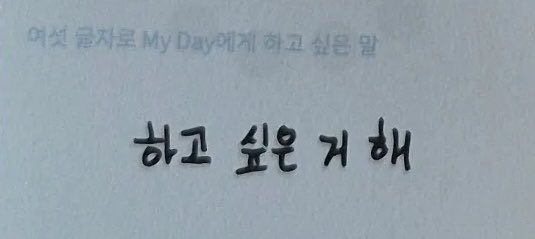 여섯 글자로 My Day에게 하고 싶은 말
하고 싶은 거 해